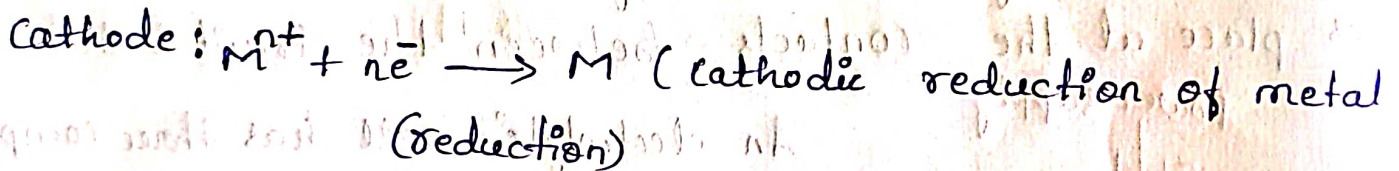 Cathode : Mⁿ⁺ + ne⁻ → M (cathodic reduction of metal
(reduction)